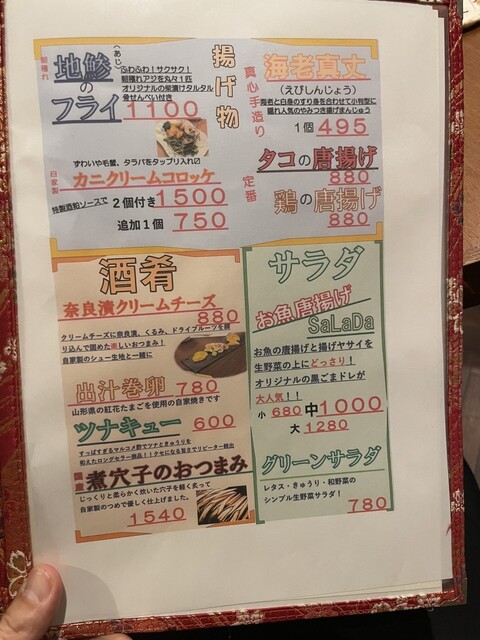 揚げ物
朝獲れ
地鯵
(あじ)
の
フライ
ふわふわ!サクサク!
朝獲れアジを丸々1匹
オリジナルの柴漬けタルタル
骨せんべい付き
1100
真心手造り
海老真丈
(えびしんじょう)
海老と白身のすり身を合わせて小判型に
隠れ人気のやみつき揚げまんじゅう
1個 495
ずわいや毛蟹、タラバをタップリ入れ
自家製
カニクリームコロッケ
特製酒粕ソースで 2個付き 1500
追加1個 750
定番
タコの唐揚げ
880
鶏の唐揚げ
880
酒肴
奈良漬クリームチーズ
880
クリームチーズに奈良漬、くるみ、ドライフルーツを練
り込んで固めた楽しいおつまみ!
自家製のシュー生地と一緒に
出汁巻卵 780
山形県の紅花たまごを使用の自家焼きです
ツナキュー 600
すっぱすぎるマルコメ酢でツナときゅうりを
和えたロングセラー商品!!クセになる旨さでリピーター続出
国産
煮穴子のおつまみ
じっくりと柔らかく炊いた穴子を軽く炙って
自家製のつめで優しく仕上げました。
1540
サラダ
お魚唐揚げ
SaLaDa
お魚の唐揚げと揚げヤサイを
生野菜の上にどっさり!
オリジナルの黒ごまドレが
大人気!!
小 680 中1000
大 1280
グリーンサラダ
レタス・きゅうり・和野菜の
シンプル生野菜サラダ!
780